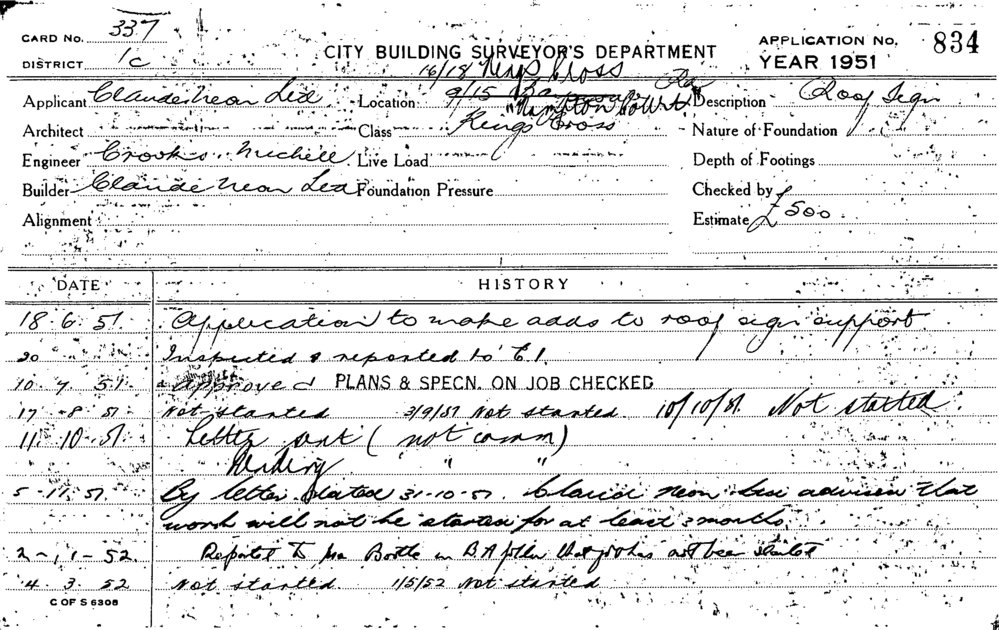 CARD NO. 337
CITY BUILDING SURVEYOR'S DEPARTMENT
APPLICATION NO. 834
DISTRICT 1c
YEAR 1951
16/18 Kings Cross
Rd
Applicant Claude Neon Ltd
Location 9/15
"Hampton Court"
Description Roof Sign
Architect
Class Kings Cross
Nature of Foundation
Engineer Crooks Michell
Live Load
Depth of Footings
Builder Claude Neon Ltd
Foundation Pressure
Checked by
Alignment
Estimate £500
DATE HISTORY
18 6 51 Application to make adds to roof sign support
20 Inspected & reported to C.I.
10 7 51 Approved PLANS & SPECN. ON JOB CHECKED
17 -8 51 Not started 3/9/51 Not started 10/10/51. Not started.
11 10 51 Letter sent (not comm)
" "
5 -11 51 By letter dated 31-10-51 Claud Neon Ltd advises that
work will not be started for at least 3 months.
2-1-52 Reported to Mr
4 3 52 Not started 1/5/52 Not started
C OF S 6308